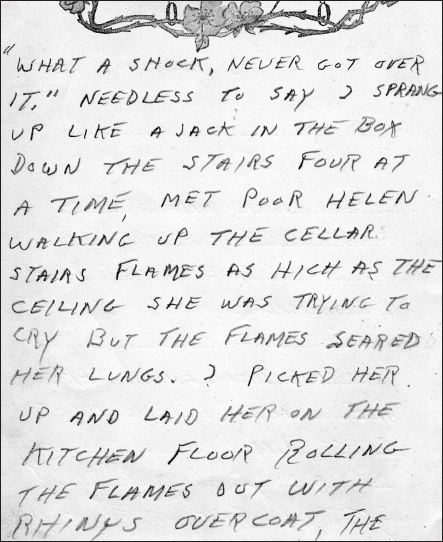 "WHAT A SHOCK, NEVER GOT OVER
IT." NEEDLESS TO SAY I SPRANG
UP LIKE A JACK IN THE BOX
DOWN THE STAIRS FOUR AT
A TIME, MET POOR HELEN
WALKING UP THE CELLAR
STAIRS FLAMES AS HIGH AS THE
CEILING SHE WAS TRYING TO
CRY BUT THE FLAMES SEARED
HER LUNGS. I PICKED HER
UP AND LAID HER ON THE
KITCHEN FLOOR ROLLING
THE FLAMES OUT WITH
RHINYS OVERCOAT, THE